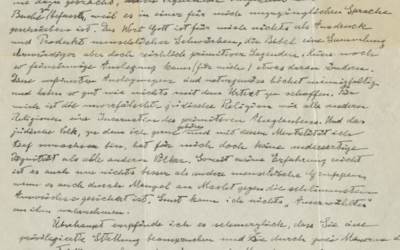 weil es in einer für mich unzugänglichen Sprache
geschrieben ist. Das Wort Gott ist für mich nichts als Ausdruck
und Produkt menschlicher Schwächen, die Bibel eine Sammlung
ehrwürdiger aber doch reichlich primitiver Legenden. Keine noch
so feinsinnige Auslegung kann (für mich) etwas daran ändern.
Diese verfeinerten Auslegungen sind naturgemäss höchst mannigfaltig
und haben so gut wie nichts mit dem Urtext zu schaffen. Für
mich ist die unverfälschte jüdische Religion wie alle anderen
Religionen eine Incarnation des primitiven Aberglaubens. Und das
jüdische Volk, zu dem ich gerne gehöre und mit dessen Mentalität ich
tief verwachsen bin, hat für mich doch keine andersartige
Dignität als alle anderen Völker. Soweit meine Erfahrung reicht
ist es auch um nichts besser als andere menschliche Gruppen
wenn es auch durch Mangel an Macht gegen die schlimmsten
Auswüchse gesichert ist. Sonst kann ich nichts „Auserwähltes"
an ihm wahrnehmen.
Überhaupt empfinde ich es schmerzlich, dass Sie eine
privilegierte Stellung beanspruchen und sie durch zwei Mauern